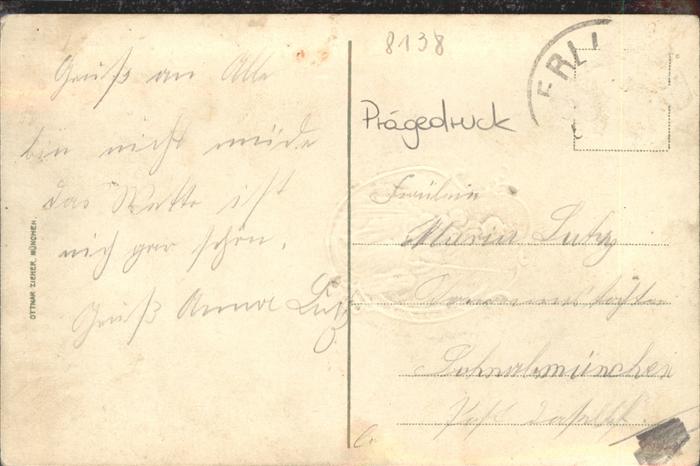 Gruß an Alle
bin nicht müde
das Wetter ist
nich gar schön.
Gruß Anna Lutz
OTTMAR ZIEHER, MÜNCHEN.
8138
Prägedruck
ERL
Fräulein
Maria Lutz
Schwabmünchen
Post